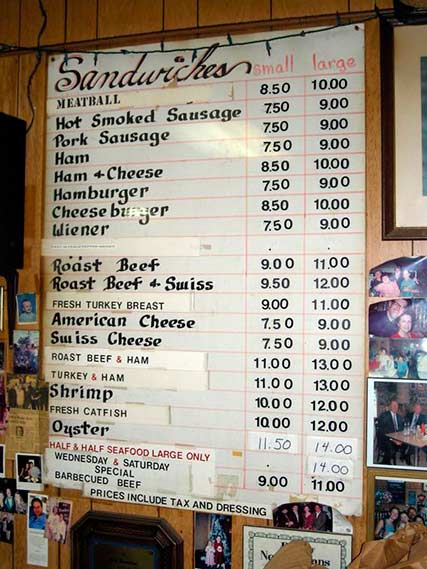 Sandwiches small large
MEATBALL 8.50 10.00
Hot Smoked Sausage 750 9.00
Pork Sausage 7.50 9.00
Ham 7.50 9.00
Ham & Cheese 8.50 10.00
Hamburger 7.50 9.00
Cheeseburger 8.50 10.00
Wiener 7.50 9.00
Roast Beef 9.00 11.00
Roast Beef & Swiss 9.50 12.00
FRESH TURKEY BREAST 9.00 11.00
American Cheese 7.50 9.00
Swiss Cheese 7.50 9.00
ROAST BEEF & HAM 11.00 13.00
TURKEY & HAM 11.00 13.00
Shrimp 10.00 12.00
FRESH CATFISH 10.00 12.00
Oyster 11.50 14.00
HALF & HALF SEAFOOD LARGE ONLY 14.00
WEDNESDAY & SATURDAY
SPECIAL
BARBECUED BEEF 9.00 11.00
PRICES INCLUDE TAX AND DRESSING